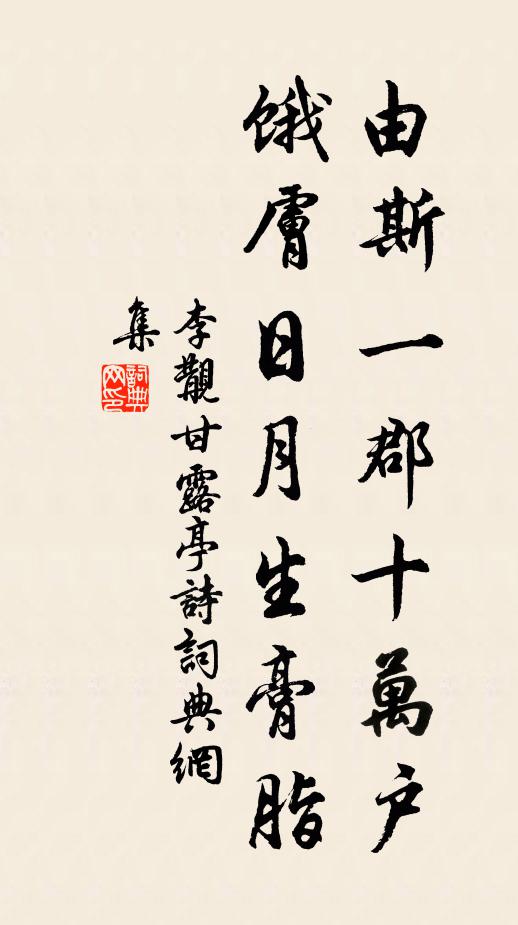 由斯一郡十萬戶
餓膚日月生膏脂
李觀甘露亭詩詞典網
集
詞典網印